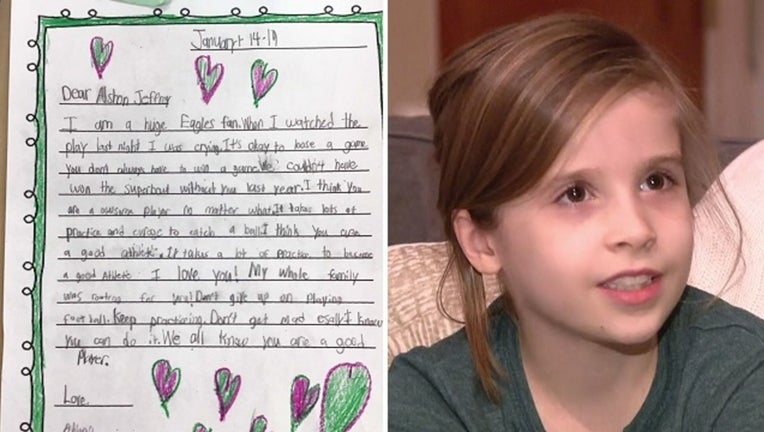 January 14-19
Dear Alshon Jeffrey
I am a huge Eagles fan. When I watched the
play last night I was crying. It's okay to loose a game
you dont always have to win a game. We couldn't have
won the superbowl without you last year. I think you
are a awsome player no matter what. It takes lots of
practice and to catch a ball. I think you are
a good athletic. It takes a lot of practice to become
a good Athletic I love you! My whole family
was rooting for you! Don't give up on playing
football. Keep practicing. Don't get mad esally I know
you can do it. We all know you are a good
Player.
Love,